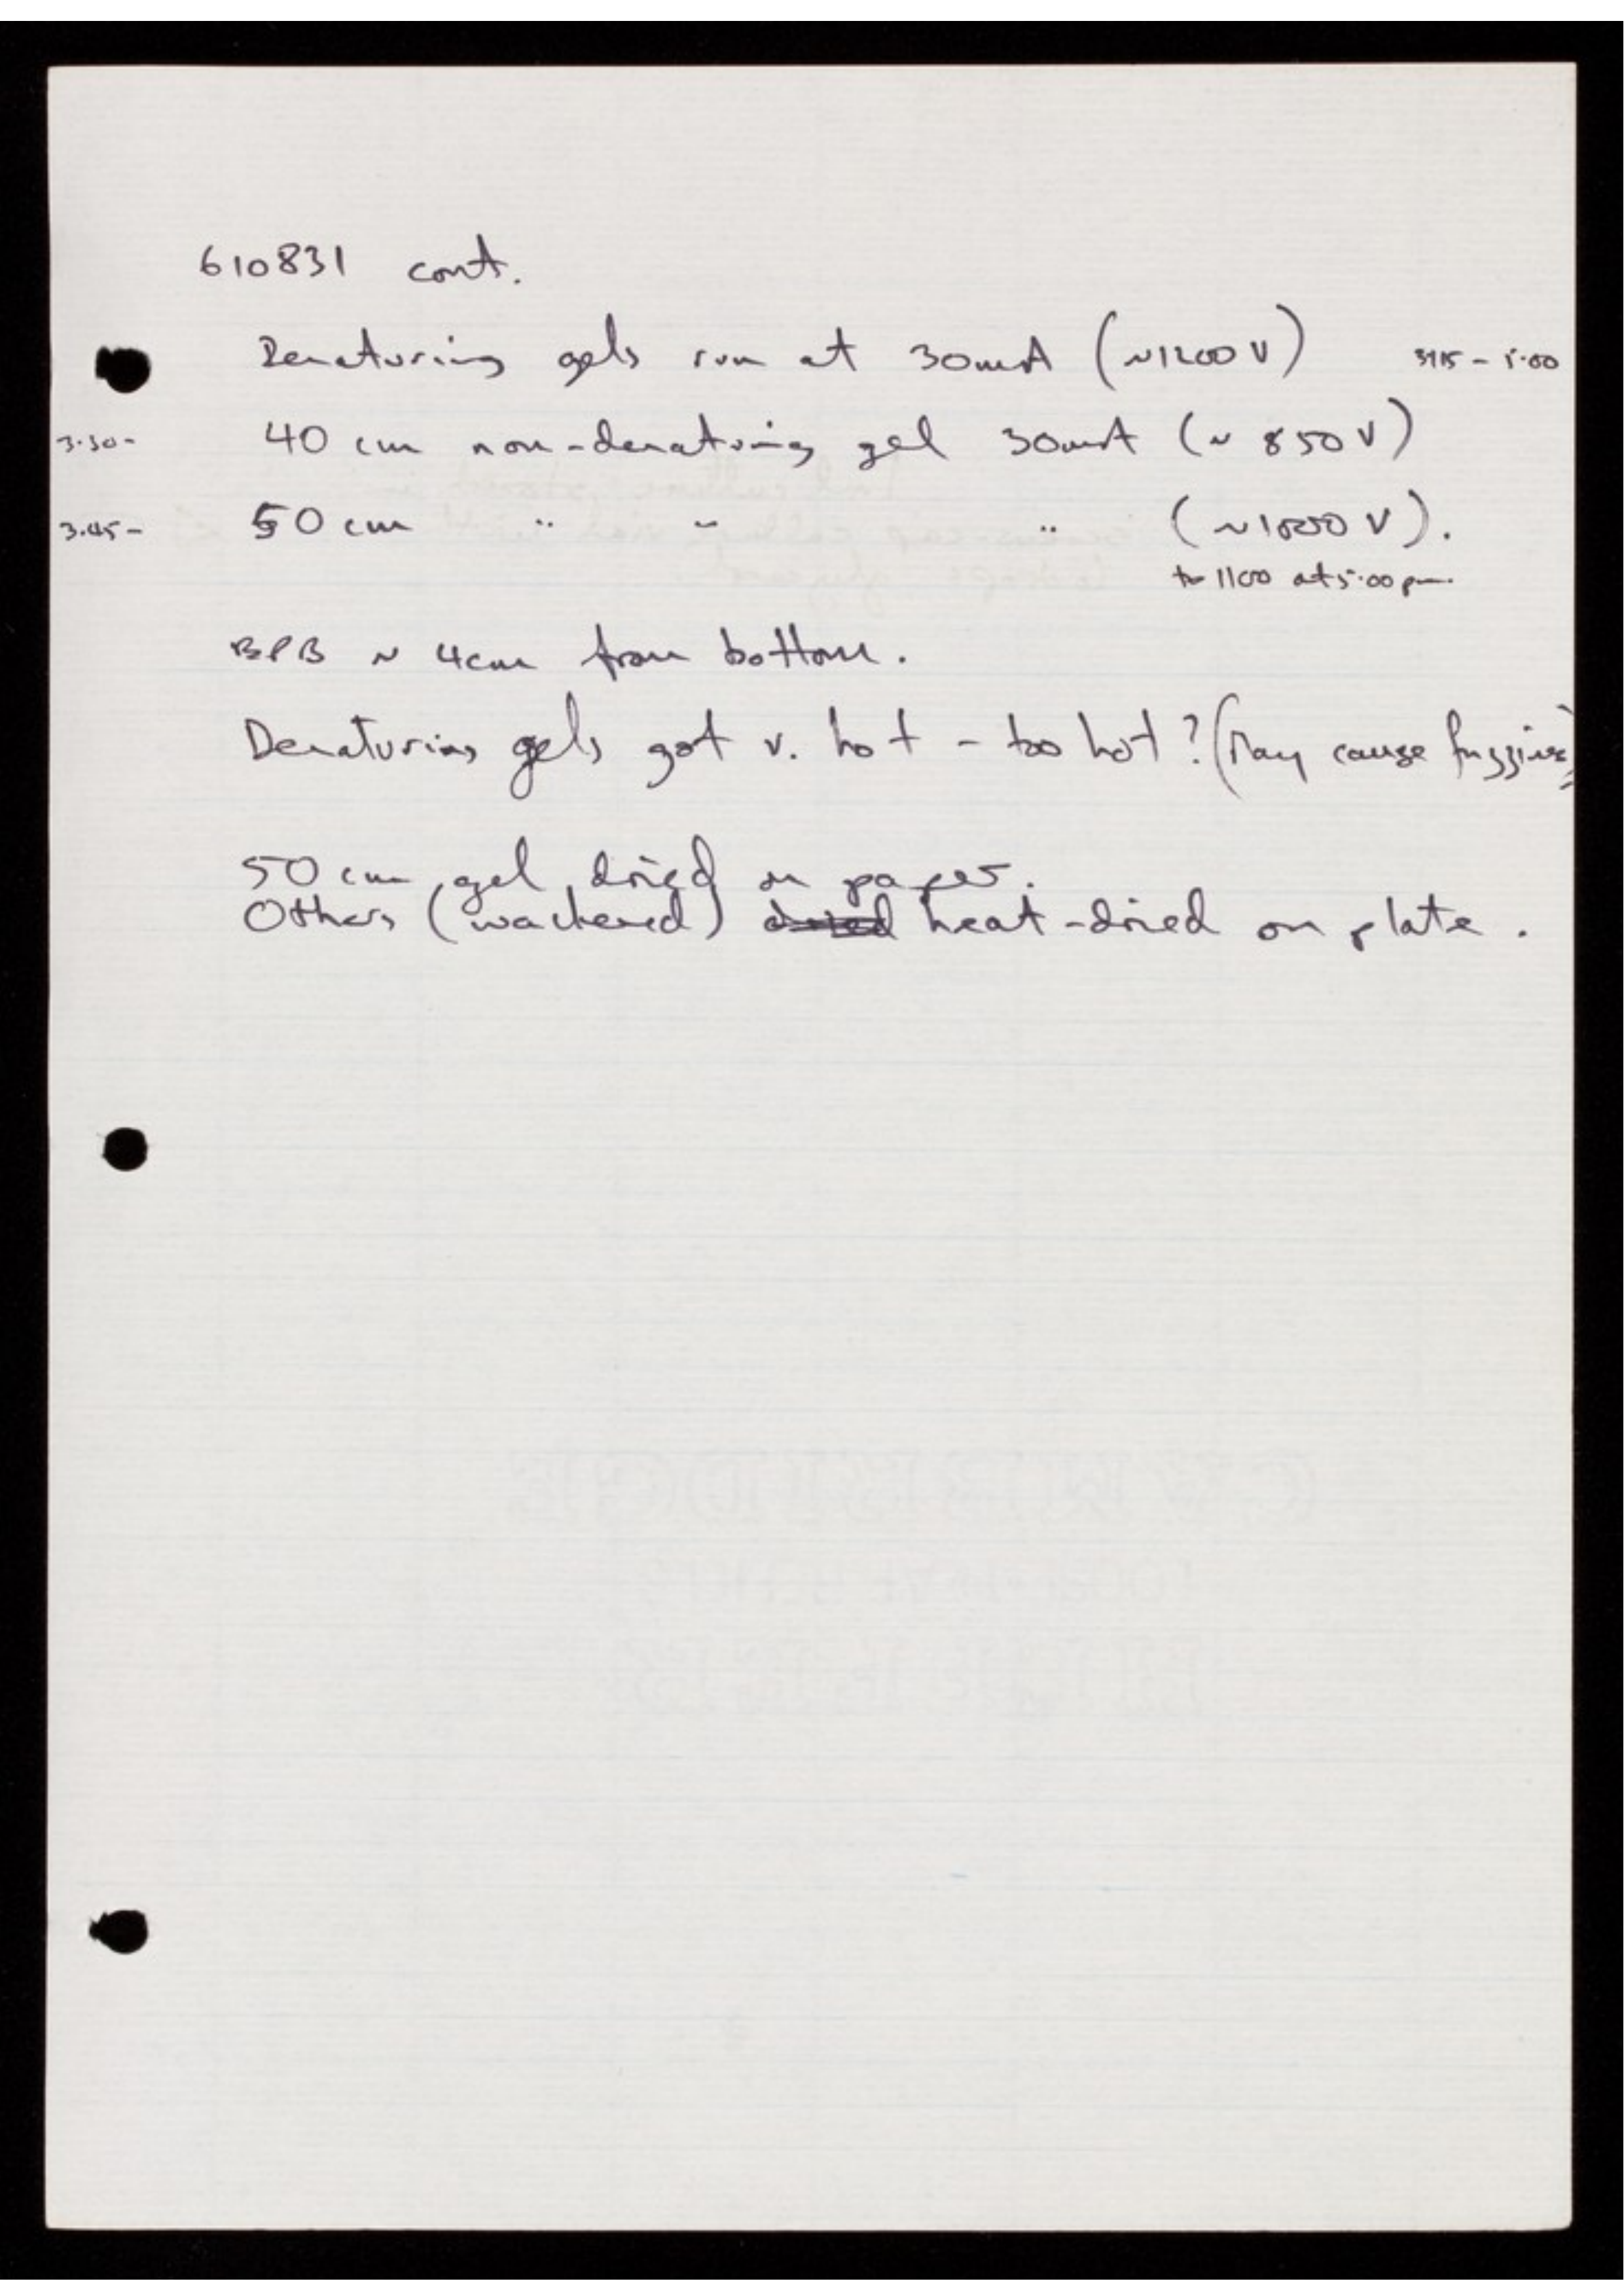 610831 cont.
Denaturing gels run at 30mA (~1200 V) 3.15 - 5.00
3.30- 40 cm non-denaturing gel 30mA (~ 850 V)
3.45- 50 cm " " " (~1000 V).
to 1100 at 5.00 pm.
BPB ~ 4cm from bottom.
Denaturing gels got v. hot - too hot? (May cause fuzziness)
50 cm gel dried on paper.
Others (wackered) dried heat-dried on plate.